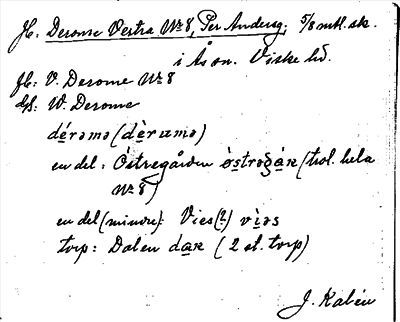 Jb: Derome Vestra No 8, Per Andersg; 5/8 mtl. sk.
i Ås sn. Viske hd.
Jb: V. Derome No 8
Gs: W. Derome
dérəmə (dèrumə)
en del: Östregården òstrəgák (trol. hela
No 8)
en del (mindre): Vies (?) vìəs
torp: Dalen dak (2 st. torp)
J. Kalén